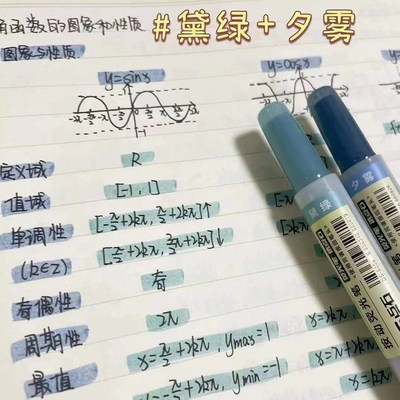 #黛绿+夕雾
角函数的图象和性质
图象与性质
y=sinx y=cosx
定义域 R
值域 [-1,1]
单调性 [-π/2+2kπ, π/2+2kπ]↑
(k∈Z) [π/2+2kπ, 3π/2+2kπ]↓
奇偶性 奇
周期性 2π
最值 x=π/2+2kπ, ymax=1
x=-π/2+2kπ, ymin=-1
黛绿
夕雾
按动荧光笔